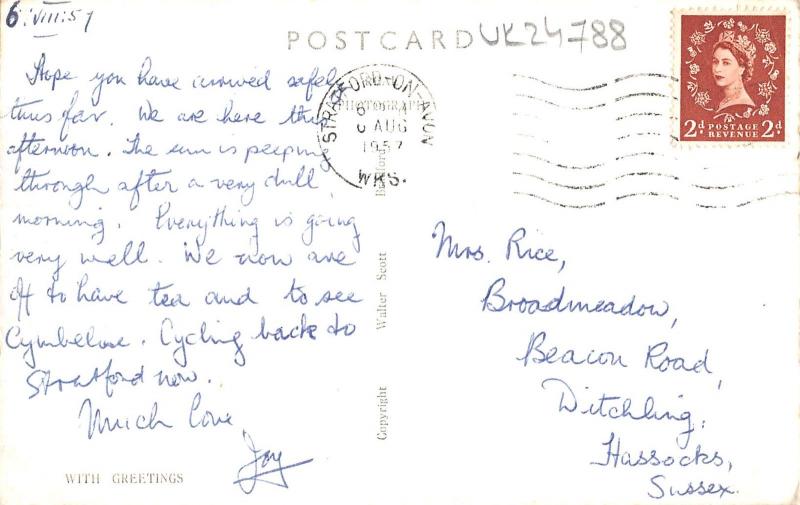 6.VIII.57
POSTCARD
UK24788
Hope you have arrived safely
thus far. We are here this
afternoon. The sun is peeping
through after a very dull
morning. Everything is going
very well. We now are
off to have tea and to see
Cymbeline. Cycling back to
Stratford now.
Much Love,
Joy
WITH GREETINGS
PHOTOGRAPH
Copyright Walter Scott
STRATFORD-ON-AVON
AUG
1957
WKS.
2d POSTAGE REVENUE 2d
Mrs. Rice,
Broadmeadow,
Beacon Road,
Ditchling,
Hassocks,
Sussex.